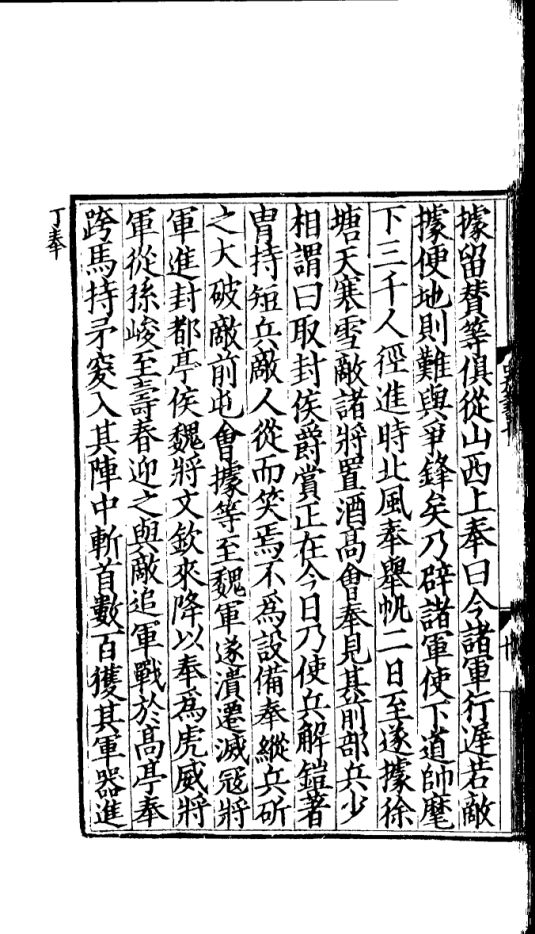 據留贊等俱從山西上奉曰今諸軍行遲若敵
據便地則難與爭鋒矣乃辟諸軍使下道帥麾
下三千人徑進時北風奉舉帆二日至遂據徐
塘天寒雪敵諸將置酒高會奉見其前部兵少
相謂曰取封侯爵賞正在今日乃使兵解鎧著
冑持短兵敵人從而笑焉不爲設備奉縱兵斫
之大破敵前屯會據等至魏軍遂潰遷滅寇將
軍進封都亭侯魏將文欽來降以奉爲虎威將
軍從孫峻至壽春迎之與敵追軍戰於高亭奉
跨馬持矛突入其陣中斬首數百獲其軍器進
丁奉